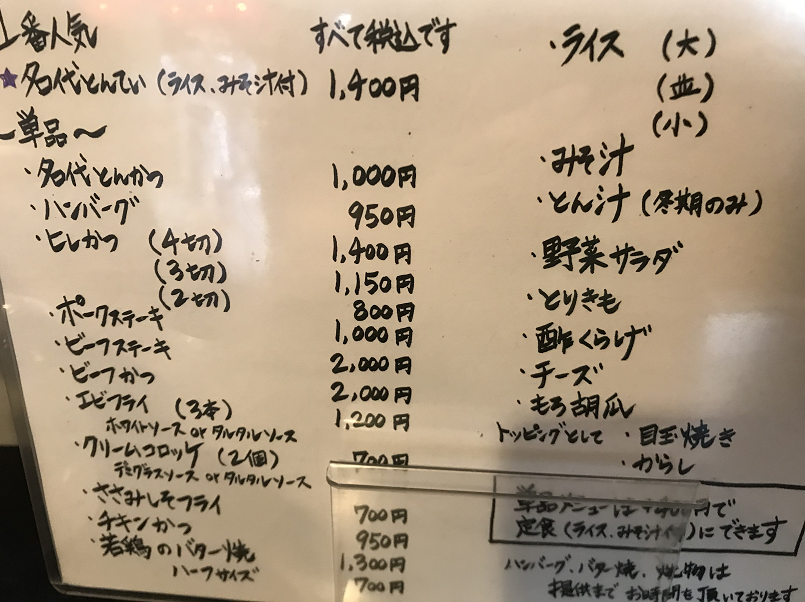 一番人気 すべて税込です
★名代とんてい(ライス、みそ汁付) 1,400円
～単品～
・名代とんかつ 1,000円
・ハンバーグ 950円
・ヒレかつ (4切) 1,400円
(3切) 1,150円
(2切) 800円
・ポークステーキ 1,000円
・ビーフステーキ 2,000円
・ビーフかつ 2,000円
・エビフライ (3本) 1,200円
ホワイトソース or タルタルソース
・クリームコロッケ (2個) 700円
デミグラスソース or タルタルソース
・ささみしそフライ 700円
・チキンかつ 950円
・若鶏のバター焼 1,300円
ハーフサイズ 700円
・ライス (大)
(並)
(小)
・みそ汁
・とん汁 (冬期のみ)
・野菜サラダ
・とりきも
・酢くらげ
・チーズ
・もろ胡瓜
トッピングとして ・目玉焼き
・からし
単品メニューは 円で
定食(ライス、みそ汁付)にできます
ハンバーグ、バター焼、焼物は
提供まで お時間を頂いております